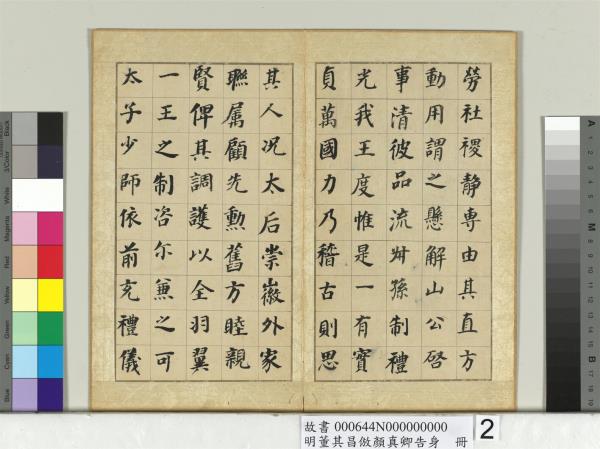 勞社稷静専由其直方
動用謂之懸解山公啓
事清彼品流叔孫制禮
光我王度惟是一有實
貞萬國力乃稽古則思
其人况太后崇徽外家
聯属顧先勲舊方睦親
賢俾其調護以全羽翼
一王之制咨尔兼之可
太子少師依前充禮儀
故書 000644N000000000
明董其昌倣顏真卿告身 冊
2
Black
3/Color
White
Magenta
Red
Yellow
Green
Cyan
Blue
A
M
B